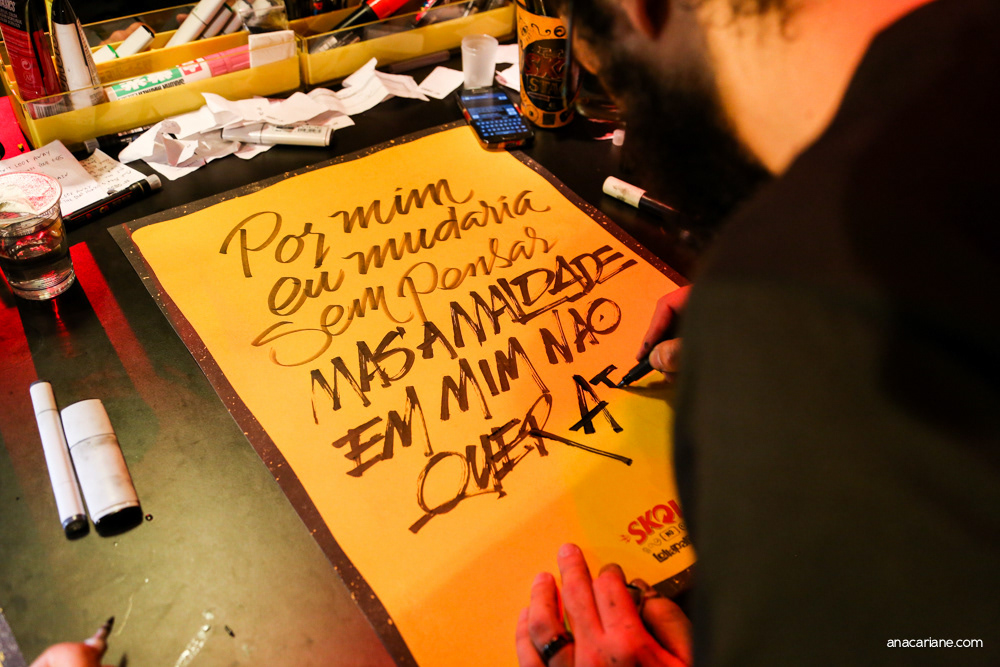 Por mim
eu mudaria
Sem Pensar
MAS A MALDADE
EM MIM NÃO
QUER AT
SKOL
anacariane.com